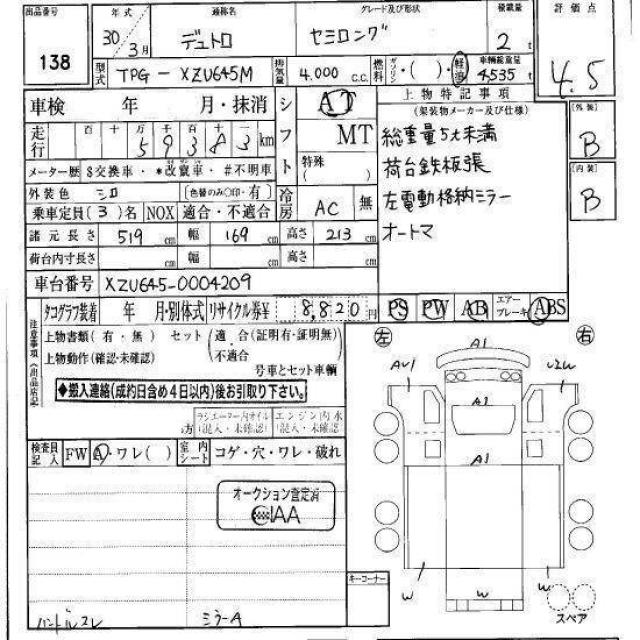 出品番号 138
年式 30年 3月
通称名 デュトロ
グレード及び形状 セミロング
積載量 2t
評価点 4.5
型式 TPG-XZU645M
排気量 4.000 c.c.
燃料 ガソリン・( )・軽油
車輌総重量 4535t
車検 年 月・抹消
シフト AT MT
特殊( )
走行 百 十 万 千 百 十 km
59383
メーター歴 $交換車・*改竄車・#不明車
外装色 シロ (色替のみ○印・有)
冷房 AC 無
乗車定員(3)名 NOX 適合・不適合
諸元長さ 519cm 幅 169cm 高さ 213cm
荷台内寸長さ cm 幅 cm 高さ cm
車台番号 XZU645-0004209
上物特記事項
(架装物メーカー及び仕様)
総重量5t未満
荷台鉄板張
左電動格納ミラー
オートマ
外装 B
内装 B
タコグラフ装着 年 月・別体式 リサイクル券¥ 8,820円
PS PW AB エアーブレーキ ABS
注意事項(出品店記
上物書類(有・無) セット(適合(証明有・証明無)
不適合
上物動作(確認・未確認)
号車とセット車輌
◆搬入連絡(成約日含め4日以内)後お引取り下さい。
(混入・未確認) エンジン内水(混入・未確認)
検査員記入 FW A・ワレ( ) 室内シート コゲ・穴・ワレ・破れ
オークション査定済
JAA
キーコーナー
ミラーA
左 右
A1
AU1 U2W
A1
A1
W W W
スペア